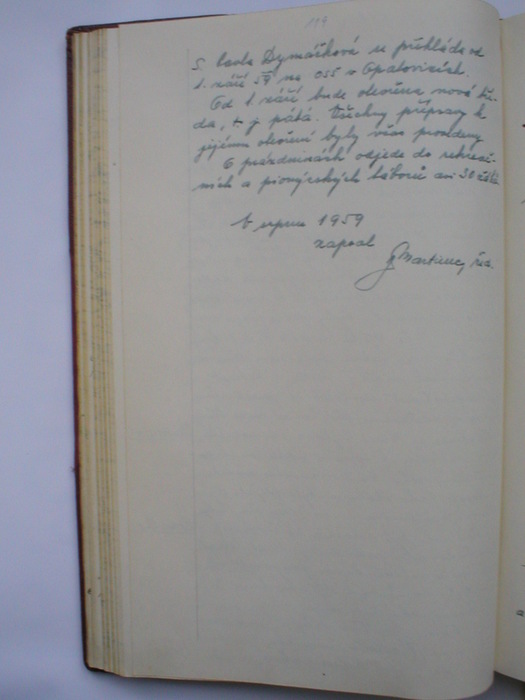 194
S. Dymáčková se překládá od
1. září 59 na OSŠ v Opatovicích.
Od 1. září bude otevřena nová tří-
da, t. j. pátá. Všechny přípravy k
jejímu otevření byly včas provedeny.
O prázdninách odjede do rekreač-
ních a pionýrských táborů asi 30 žáků.
V srpnu 1959
napsal
Martinec, řed.